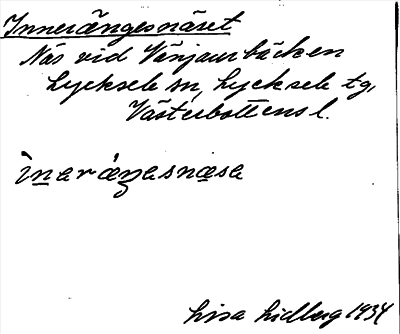 Innerängesnäset
Näs vid Vänjaurbäcken
Lycksele sn, Lycksele tg,
Västerbottens l.
ìnaráŋasnæsa
Lisa Lidberg 1934